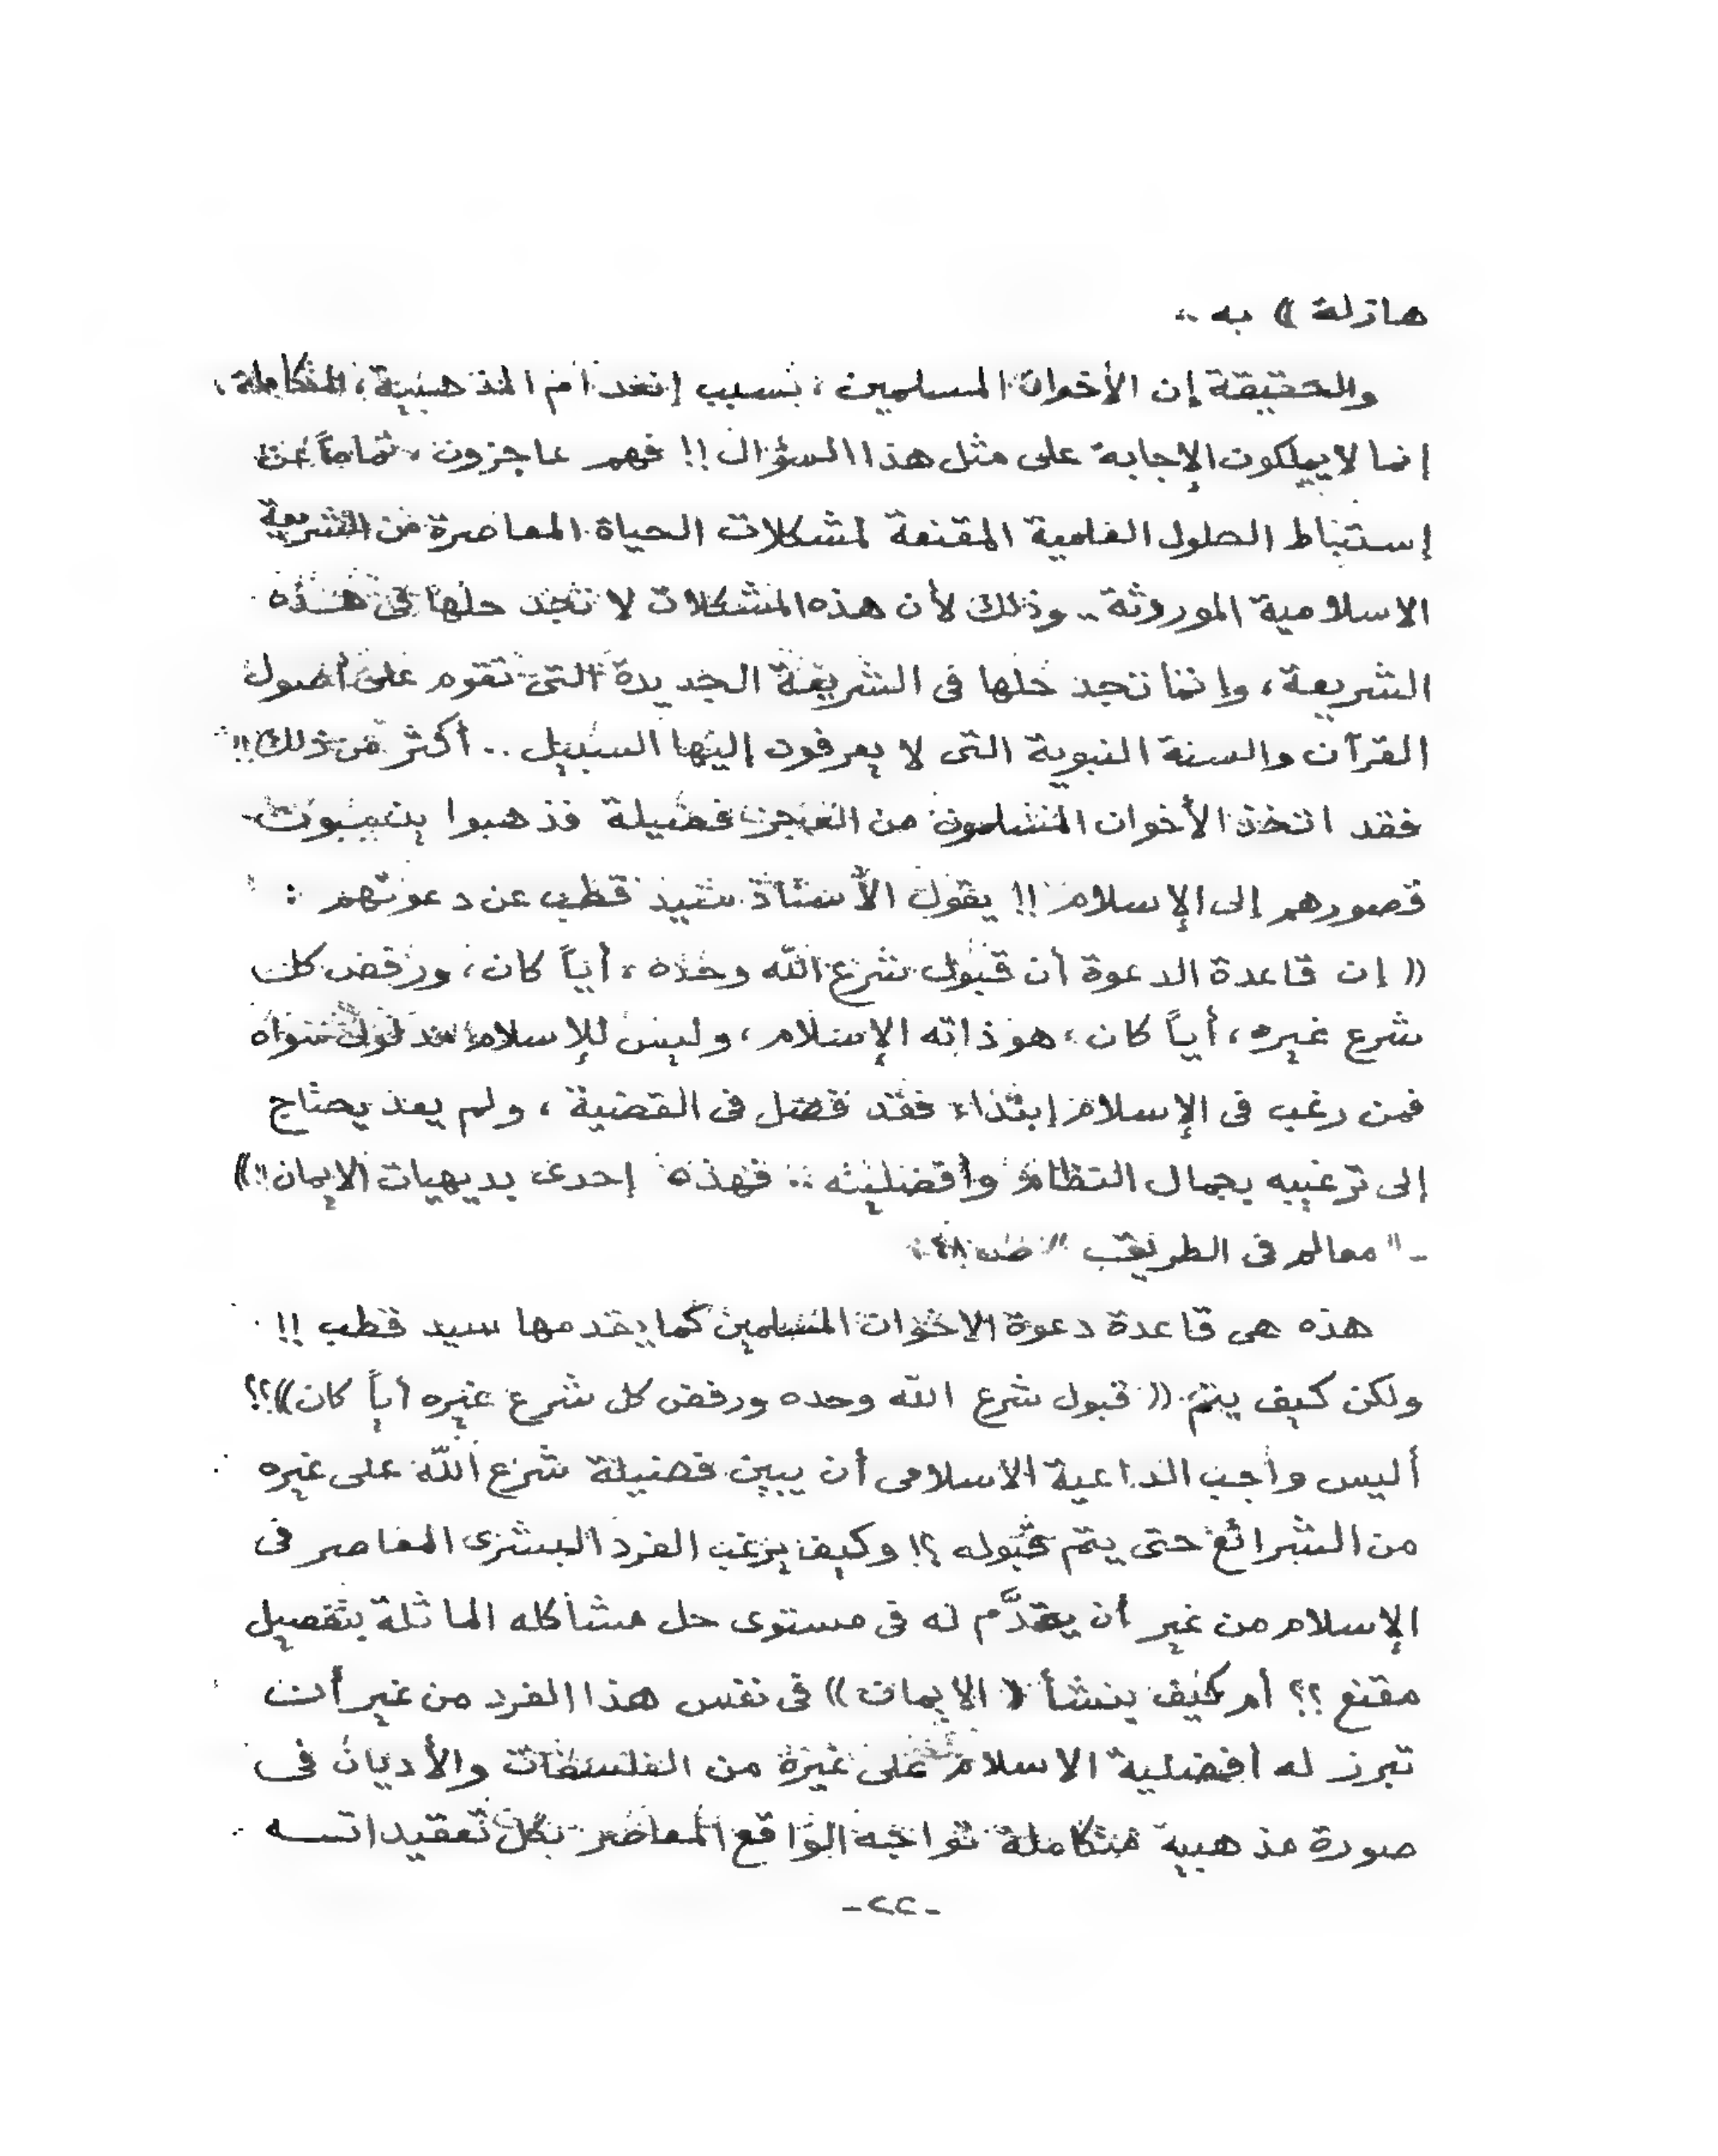 هازلة )) به ..
والحقيقة إن الأخوان المسلمين ، بسبب إنعدام المذهبية ، المتكاملة ،
إنما لا يملكون الإجابة على مثل هذا السؤال !! فهم عاجزون ، تماماً عن
إستنباط الحلول العلمية المقنعة لمشكلات الحياة المعاصرة من الشريعة
الاسلامية الموروثة .. وذلك لأن هذه المشكلات لا تجد حلها فى هـذه
الشريعة ، وإنما تجد حلها فى الشريعة الجديدة التى تقوم على أصول
القرآن والسنة النبوية التى لا يعرفون إليها السبيل .. أكثر من ذلك !!
فقد اتخذ الأخوان المسلمون من العجز فضيلة فذهبوا ينسبون
قصورهم إلى الإسلام !! يقول الأستاذ سيد قطب عن دعوتهم :
(( إن قاعدة الدعوة أن قبول شرع الله وحده ، أياً كان ، ورفض كل
شرع غيره ، أياً كان ، هو ذاته الإسلام ، وليس للإسلام مدلول سواه
فمن رغب فى الإسلام إبتداء فقد فصل فى القضية ، ولم يعد يحتاج
إلى ترغيبه بجمال النظام وأفضليته .. فهذه إحدى بديهيات الايمان !! ))
- " معالم فى الطريق " ص ٤٨ .
هذه هى قاعدة دعوة الاخوان المسلمين كما يقدمها سيد قطب !!
ولكن كيف يتم (( قبول شرع الله وحده ورفض كل شرع غيره أياً كان )) ؟؟
أليس واجب الداعية الاسلامى أن يبين فضيلة شرع الله على غيره
من الشرائع حتى يتم قبوله ؟! وكيف يرغب الفرد البشرى المعاصر فى
الإسلام من غير أن يقدَّم له فى مستوى حل مشاكله الماثلة بتفصيل
مقنع ؟؟ أم كيف ينشأ (( الايمان )) فى نفس هذا الفرد من غير أن
تبرز له أفضلية الاسلام على غيره من الفلسفات والأديان فى
صورة مذهبية متكاملة تواجه الواقع المعاصر بكل تعقيداتـه
-٢٢-